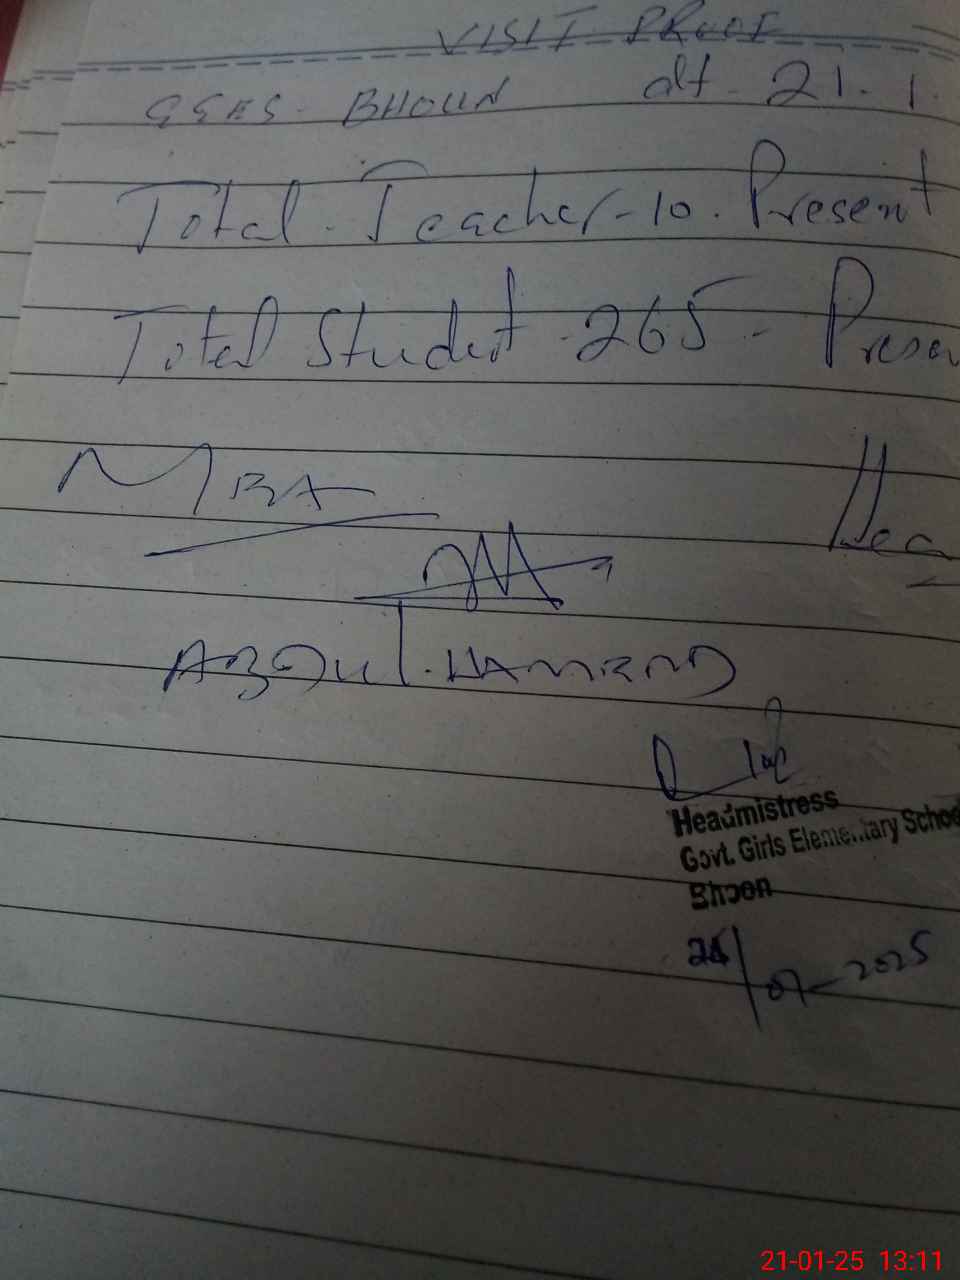 VISIT PROOF
GGES - BHOUN dt - 21.1.
Total - Teacher - 10 . Present
Total Student - 265 - Presen
MEA Hea
ABDUL . HAMEED
Headmistress
Govt. Girls Elementary School
Bhoon
21/01-2025
21-01-25 13:11